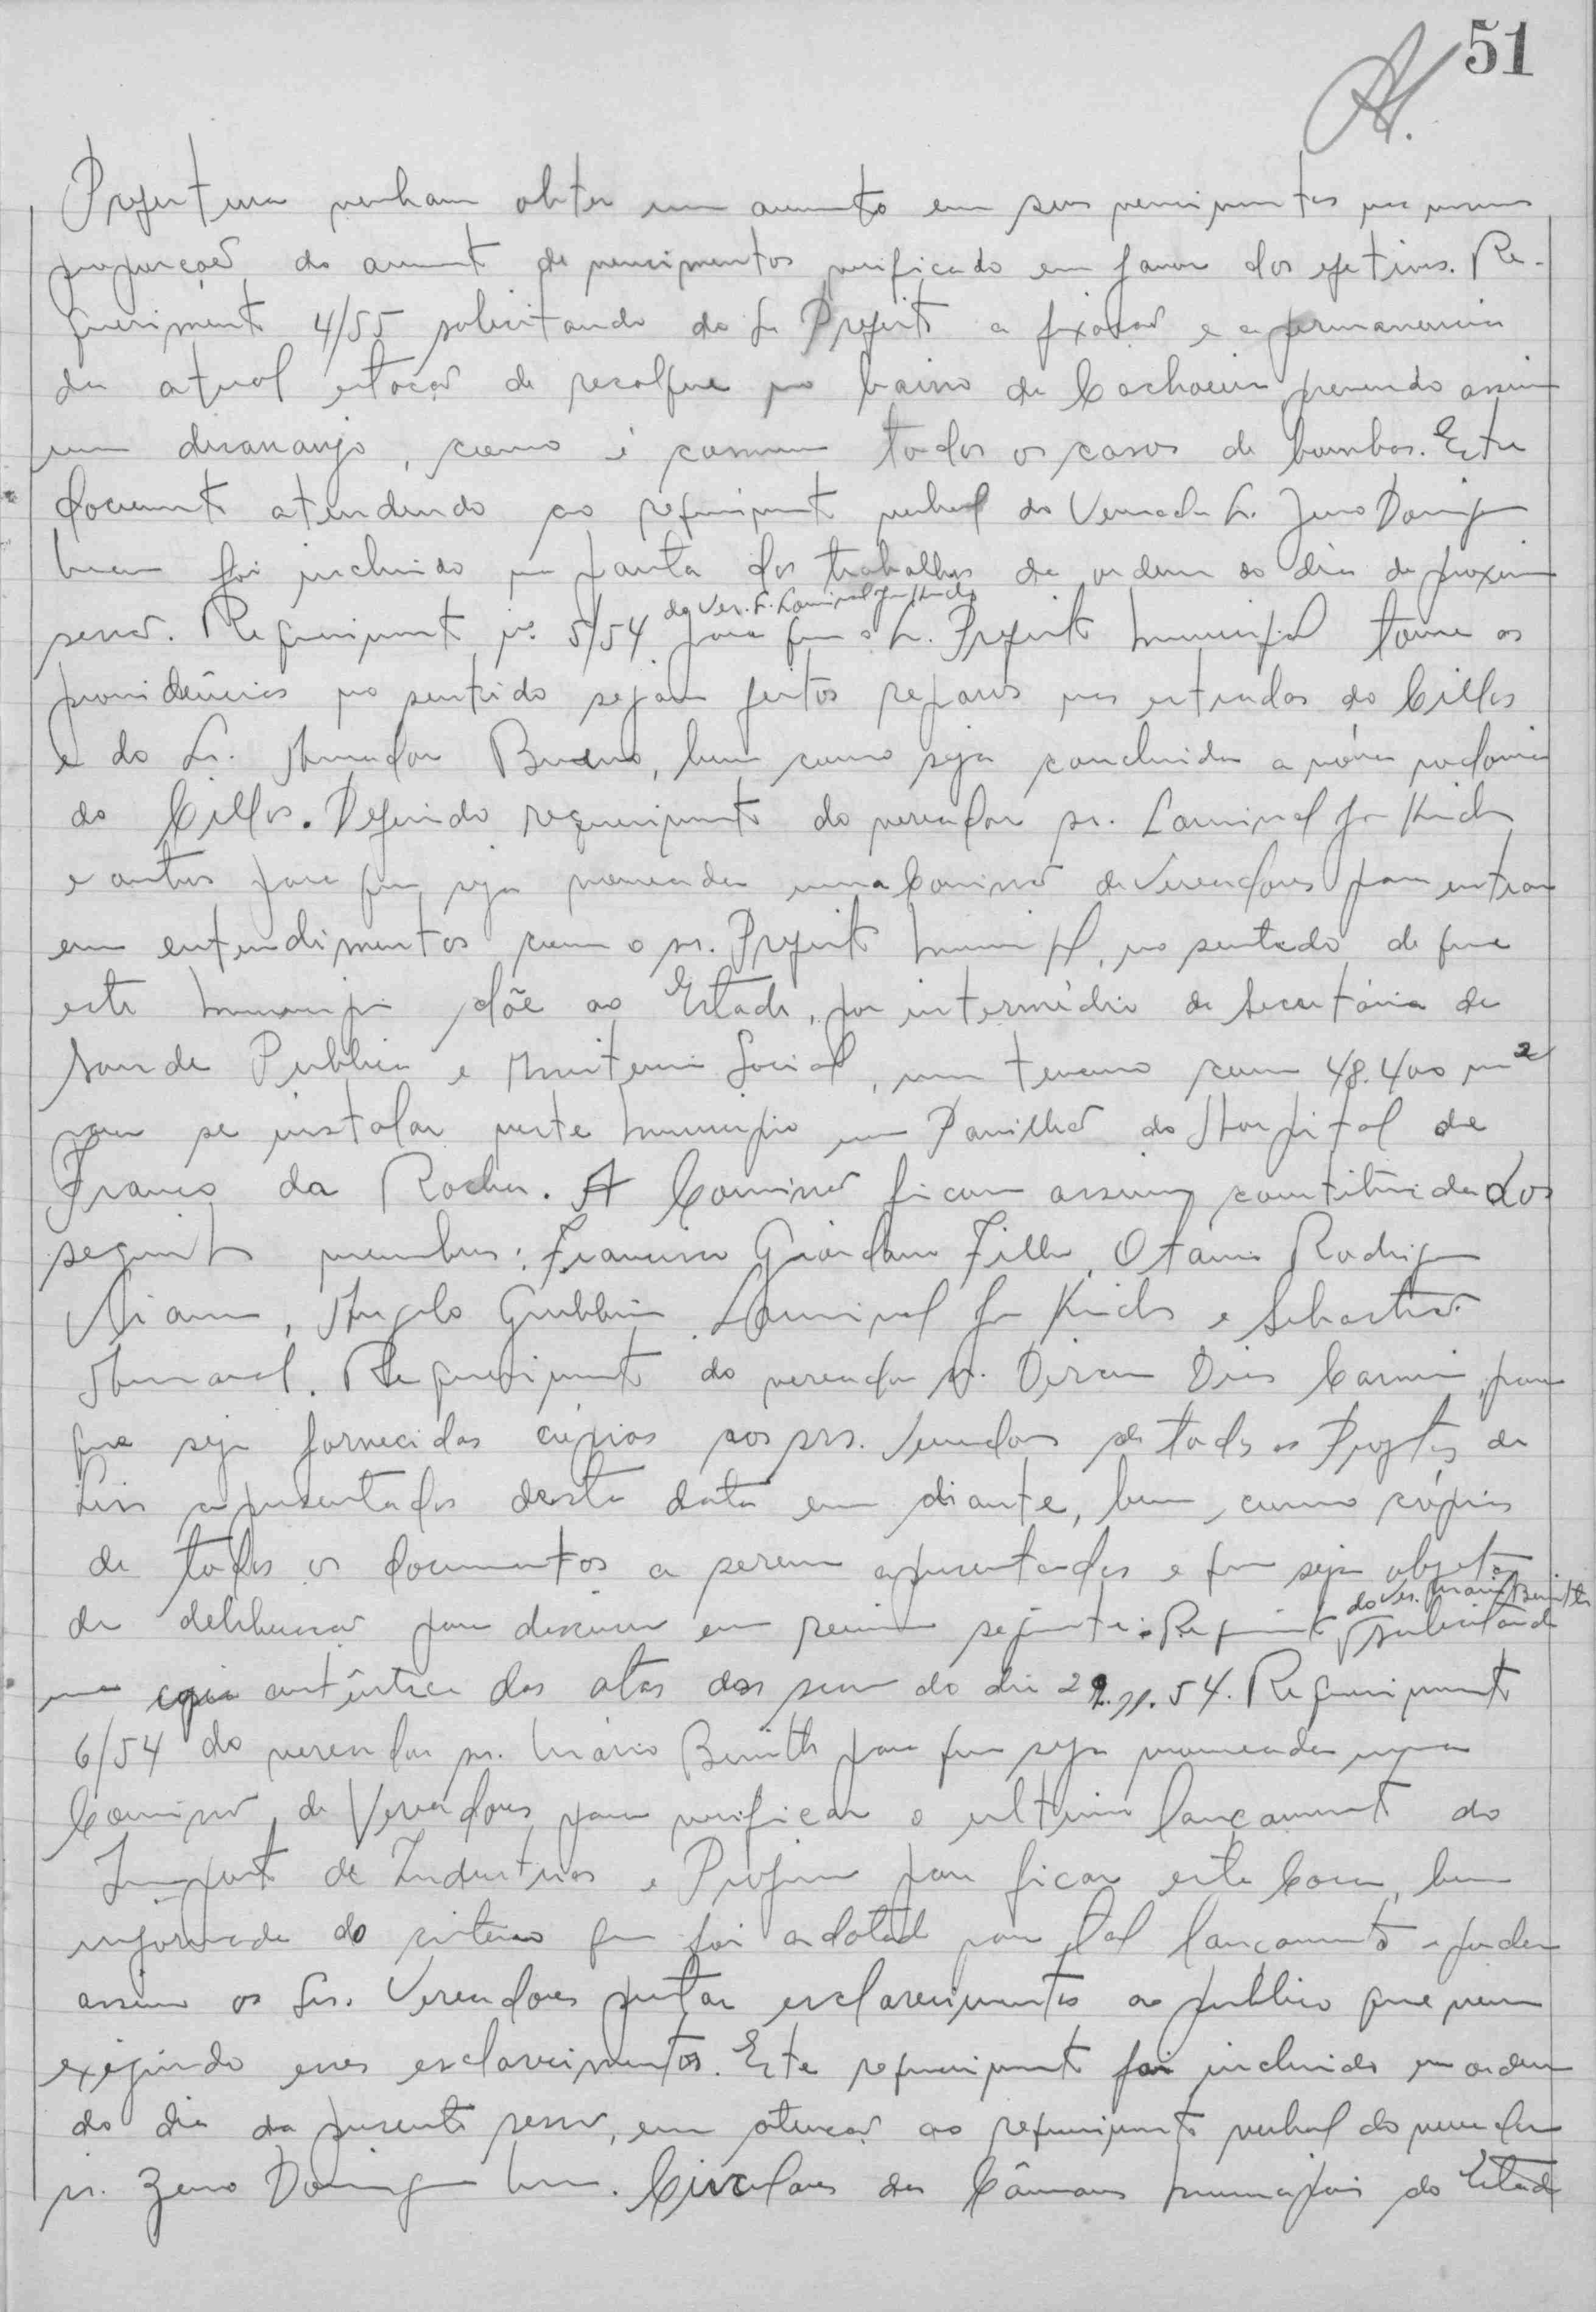 51
Prefeitura venham obter um aumento em seus vencimentos na mesma
proporção do aumento de vencimentos verificado em favor dos efetivos. Re-
querimento 4/55 solicitando do Sr Prefeito a fixação e a permanencia
da atual estação de recalque no bairro da Cachoeira prevendo assim
um desarranjo, como é comum todos os casos de bombas. Este
documento atendendo ao requerimento verbal do Vereador Sr. Zeno Domingues
foi incluido na pauta dos trabalhos da ordem do dia da proxima
sessão. Requerimento nº 5/54 do Ver. S. Lourival Jn Kinds para que o Sr. Prefeito Municipal tome as
providências no sentido sejam feitos reparos nas estradas do Cillos
e do Sr. Amador Bueno, bem como seja concluida a nóva rodovia
do Cillos. Deferido requerimento do vereador sr. Lourival
e outros para que seja nomeada uma Comissão de Vereadores para entrar
em entendimentos com o sr. Prefeito Municipal, no sentido de que
este Municipio dôe ao Estado, por intermédio da Secretária da
Saude Publica e Assistencia Social, um terreno com 48.400 m²
para se instalar neste Municipio um Pavilhão do Hospital de
Franco da Rocha. A Comissão ficou assim constituida dos
seguintes membros: Francisco Giordano Filho, Otavio Rodrigues
Viana, Angelo Lourival e Sebastião
Amaral. Requerimento do vereador sr. Dirceu Dias Carneiro, para
que seja fornecidas cópias aos srs. Vereadores de todos os Projetos de
Leis apresentados desta data em diante, bem como cópias
de todos os documentos a serem apresentados e que seja objeto
de deliberação para discussão em reunião seguinte. Requerimento do Ver. Mario solicitando
uma copia autêntica das atas das sessão do dia 29.11.54. Requerimento
6/54 do vereador sr. Mário para que seja nomeada uma
Comissão de Vereadores para verificar o ultimo lançamento do
Imposto de Industrias e Profissões para ficar esta Casa, bem
informada do criterio que foi adotado para tal lançamento e poder
assim os Srs. Vereadores prestar esclarecimentos ao publico que vem
exigindo esses esclarecimentos. Este requerimento foi incluido na ordem
do dia da presente sessão, em atenção ao requerimento verbal do vereador
sr. Zeno Domingues. Circulares das Câmaras Municipais do Estado